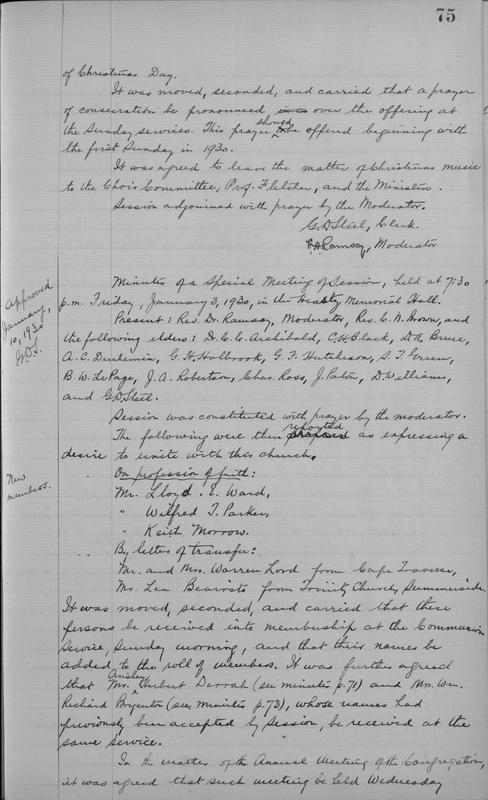 75
of Christmas Day.
It was moved, seconded, and carried that a prayer
of consecration be pronounced over the offering at
the Sunday services. This prayer should be offered beginning with
the first Sunday in 1930.
It was agreed to leave the matter of Christmas music
to the Choir Committee, Prof. Fletcher, and the Ministers.
Session adjourned with prayer by the Moderator.
G.D. Steel, Clerk.
Ramsay, Moderator
Approved
January
10, 1930
G.D.S.
Minutes of a Special Meeting of Session, held at 7:30
p.m. Friday, January 3, 1930, in the Heartz Memorial Hall.
Present: Rev. Dr. Ramsay, Moderator, Rev. C. N. Brown, and
the following elders: Dr. C.C. Archibald, C.H. Black, D.A. Bruce,
A.C. Duchemin, G.H. Holbrook, G.F. Hutcheson, S.T. Green,
B.W. LePage, J.A. Robertson, Chas. Ross, J. Paton, D. Williams,
and G.D. Steel.
Session was constituted with prayer by the moderator.
The following were then reported as expressing a
desire to unite with this church.
New
members.
On profession of faith:
Mr. Lloyd E. Ward,
" Wilfred T. Parker,
" Keith Morrow.
By letter of transfer:
Mr. and Mrs. Warren Lord from Cape Traverse,
Mr. Lea Bearisto from Trinity Church, Summerside.
It was moved, seconded, and carried that these
persons be received into membership at the Communion
Service, Sunday morning, and that their names be
added to the roll of members. It was further agreed
that Mr. Ansley Herbert Derrah (see minutes p. 71) and Mr. Wm.
Richard Bryenton (see minutes p. 73), whose names had
previously been accepted by Session, be received at the
same service.
In the matter of the Annual Meeting of the Congregation,
it was agreed that such meeting be held Wednesday